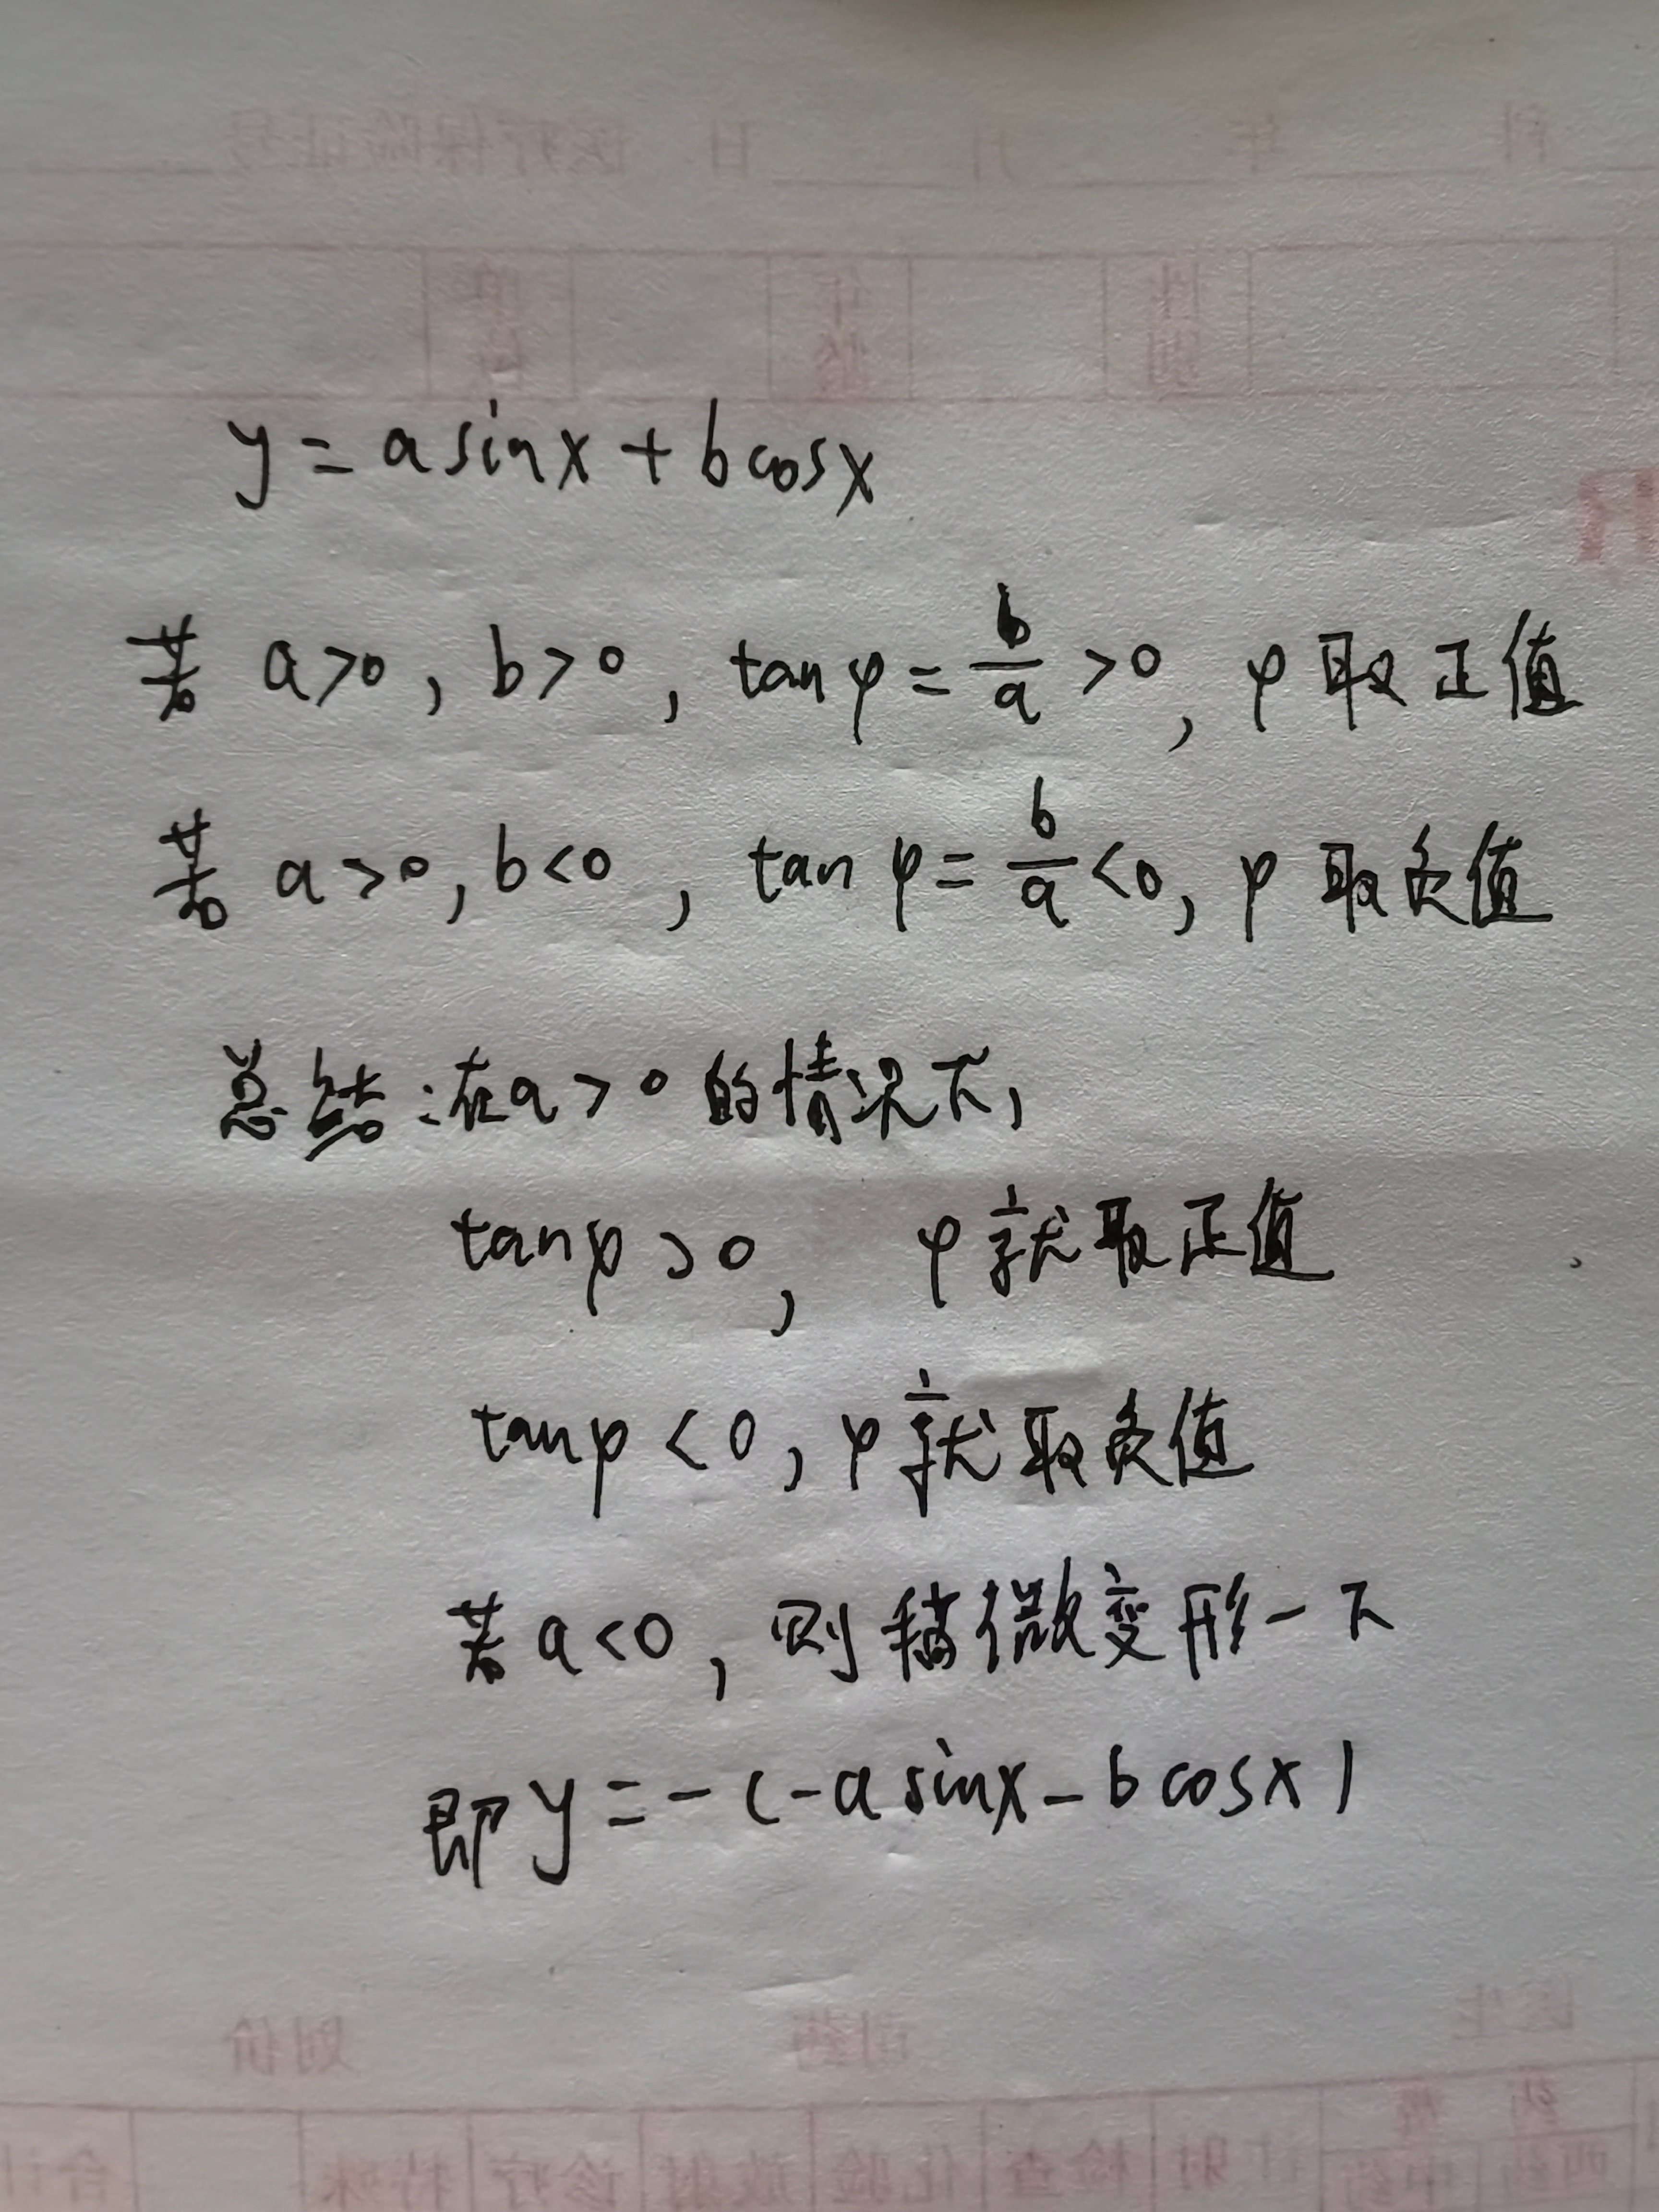 y = a sinx + b cosx
若 a>0, b>0, tanφ = b/a >0, φ 取正值
若 a>0, b<0, tan φ = b/a <0, φ 取负值
总结:在a>0的情况下,
tanφ>0, φ就取正值
tanφ<0, φ就取负值
若a<0, 则稍微变形一下
即y=-(-a sinx - b cosx)